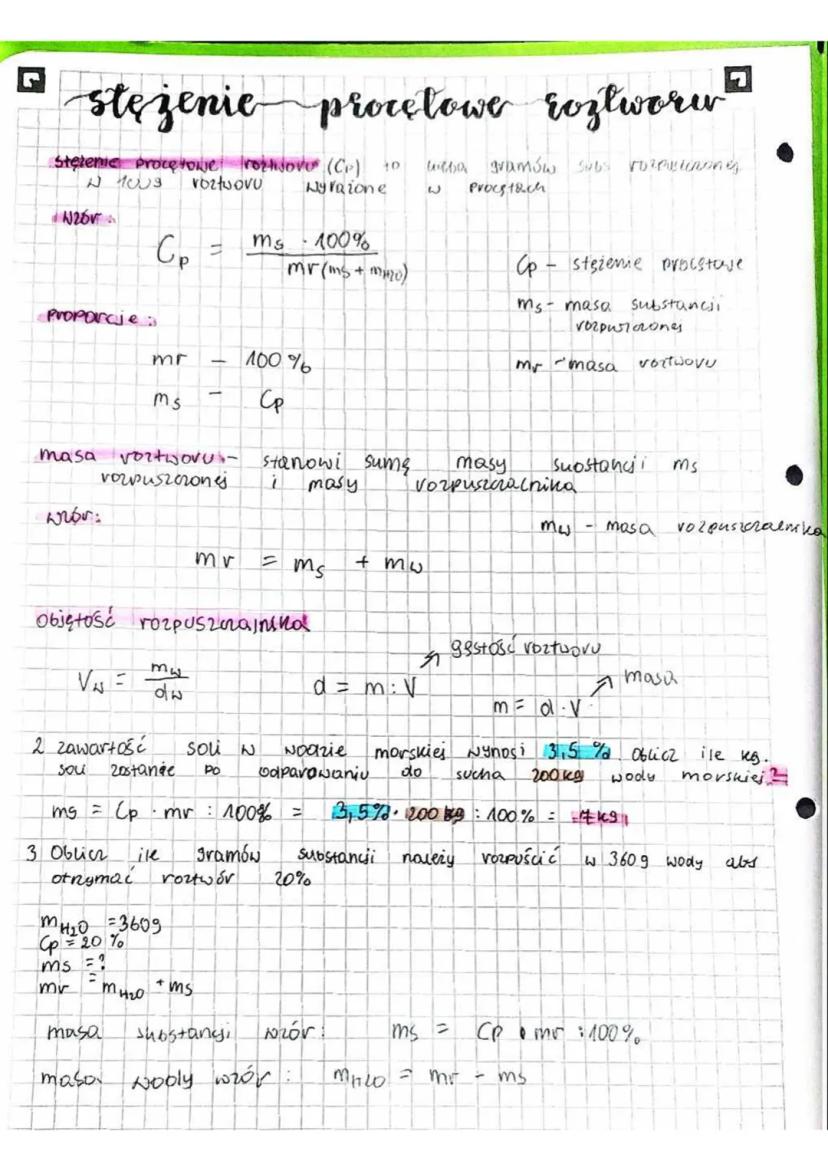 stężenie procętowe roztworu
stężenie procętowe roztworu (Cp) to liczba gramów subs rozpuszczonej
w 100g roztworu wyrażone w procętach
wzór:
Cp = ms · 100% / mr (ms + mH2O)
Cp - stężenie procętowe
ms - masa substancji
rozpuszczonej
proporcje:
mr - 100%
mr - masa roztworu
ms - Cp
masa roztworu - stanowi sumę masy substancji ms
rozpuszczonej i masy rozpuszczalnika
wzór:
mw - masa rozpuszczalnika
mr = ms + mw
objętość rozpuszczalnika
gęstość roztworu
Vw = mw / dw
d = m : V
masa
m = d · V
2 zawartość soli w wodzie morskiej wynosi 3,5 %. Oblicz ile kg.
soli zostanie po odparowaniu do sucha 200kg wody morskiej?
ms = Cp · mr : 100% = 3,5% · 200 kg : 100% = 7kg
3 Oblicz ile gramów substancji należy rozpuścić w 360g wody aby
otrzymać roztwór 20%
mH2O = 360g
Cp = 20 %
ms = ?
mr = mH2O + ms
masa substancji wzór: ms = Cp · mr : 100%
masa wody wzór: mH2O = mr - ms